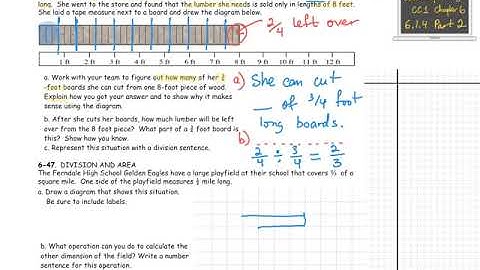 long. She went to the store and found that the lumber she needs is sold only in lengths of 8 feet.
She laid a tape measure next to a board and drew the diagram below.
2/4 left over
1 ft 2 ft 3 ft 4 ft 5 ft 6 ft 7 ft 8 ft
a. Work with your team to figure out how many of her ¾
-foot boards she can cut from one 8-foot piece of wood.
Explain how you got your answer and to show why it makes
sense using the diagram.
b. After she cuts her boards, how much lumber will be left
over from the 8 foot piece? What part of a ¾ foot board is
this? Show how you know.
c. Represent this situation with a division sentence.
a) She can cut
__ of 3/4 foot
long boards.
b)
2/4 ÷ 3/4 = 2/3
CC1 Chapter 6
6.1.4 Part 2
6-47. DIVISION AND AREA
The Ferndale High School Golden Eagles have a large playfield at their school that covers of a
square mile. One side of the playfield measures mile long.
a. Draw a diagram that shows this situation.
Be sure to include labels.
b. What operation can you do to calculate the
other dimension of the field? Write a number
sentence for this operation.